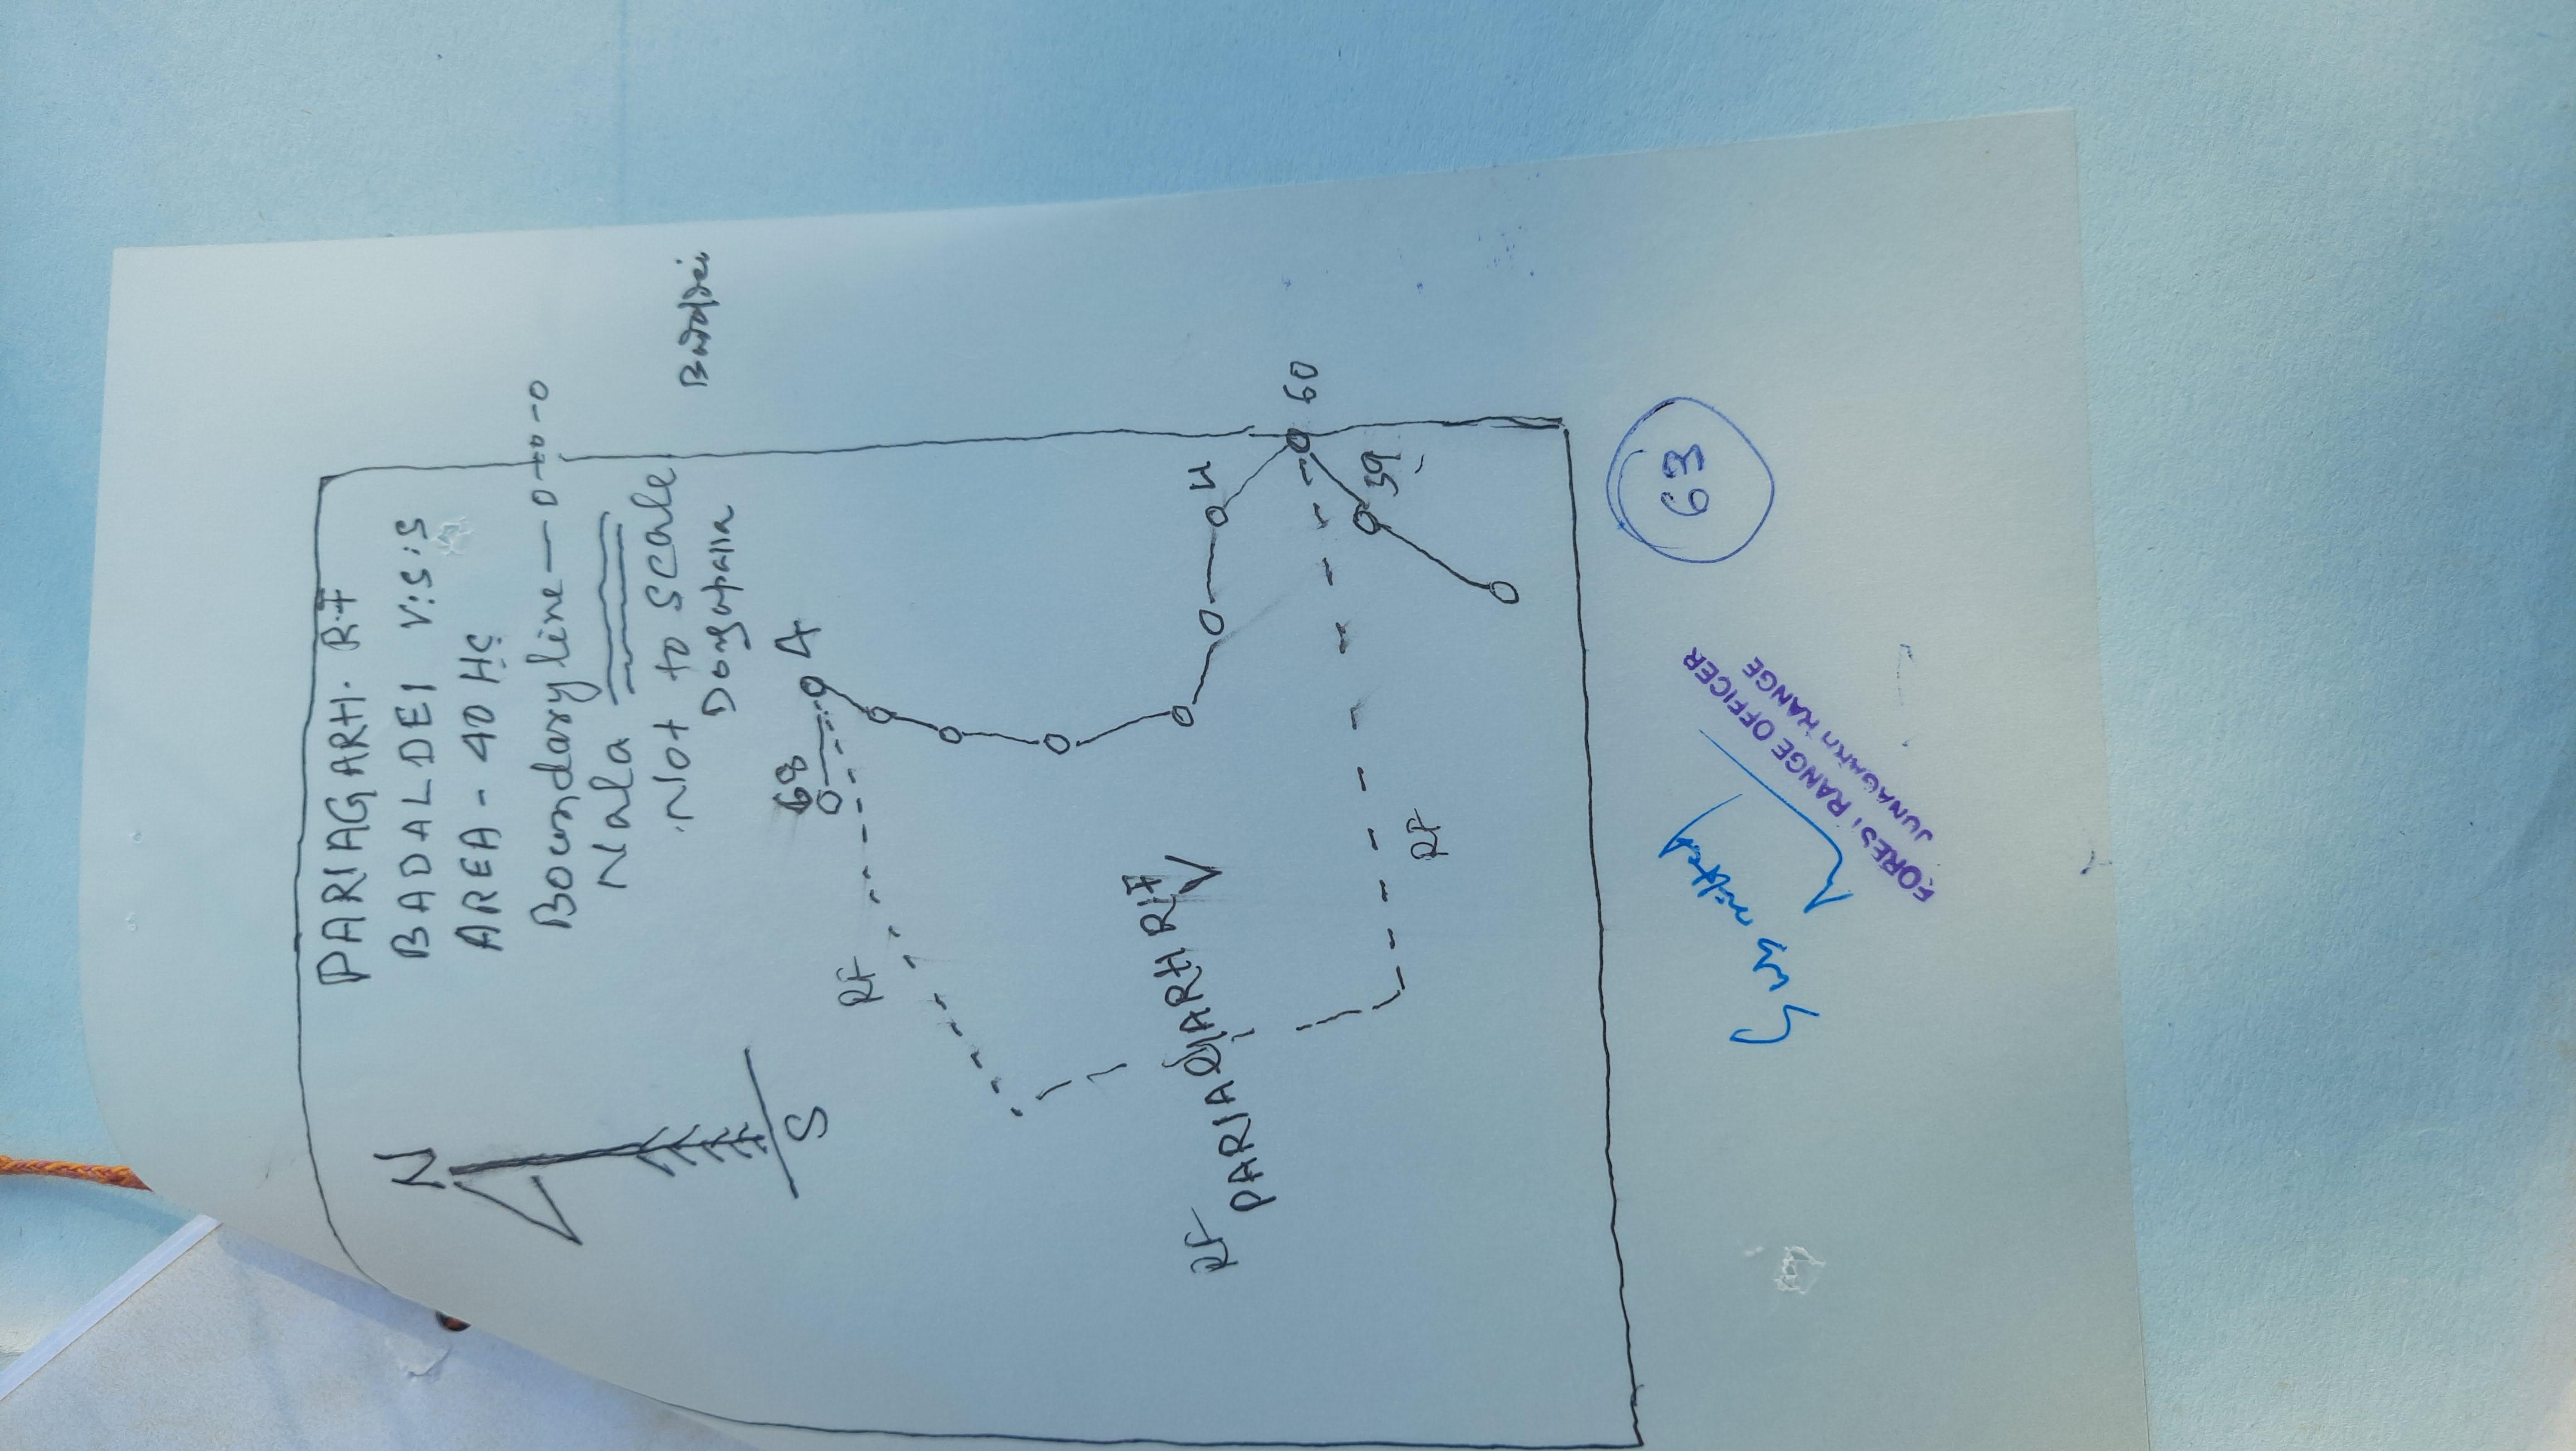 PARIAGARH. R.F
BADALDEI V:S:S
AREA - 40 Hc
Boundary line — 0-0-0-0
Nala
Not to scale
Dongapalla
N
S
68
A
RF
60
59
RF
PARIAGARH RF
RF
63
FOREST RANGE OFFICER
JUNAGARH RANGE